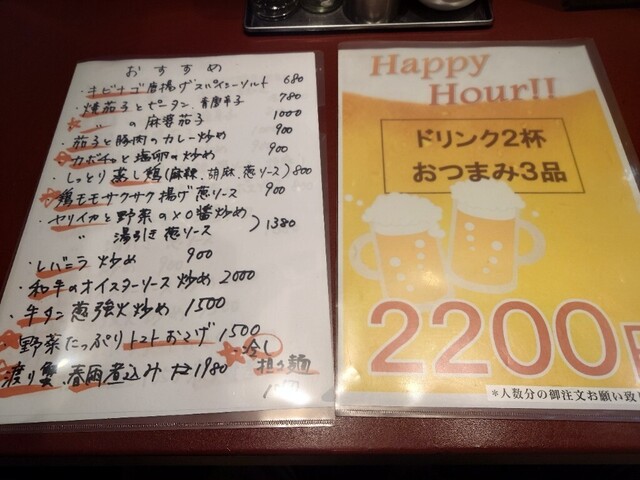 おすすめ
・キビナゴ唐揚げスパイシーソルト 680
・焼茄子とピータン、青唐辛子 780
〃 の麻婆茄子 1000
・茄子と豚肉のカレー炒め 900
・カボチャと塩卵の炒め 900
・しっとり蒸し鶏(麻辣、胡麻、葱ソース) 800
・鶏モモサクサク揚げ葱ソース 900
・ヤリイカと野菜のXO醤炒め
〃 湯引き葱ソース 1380
・レバニラ炒め 900
・和牛のオイスターソース炒め 2000
・牛タン葱強火炒め 1500
野菜たっぷりトマトおこげ 1500
渡り蟹春雨煮込み 1980
冷し
担々麺
Happy
Hour!!
ドリンク2杯
おつまみ3品
2200円
*人数分の御注文お願い致し